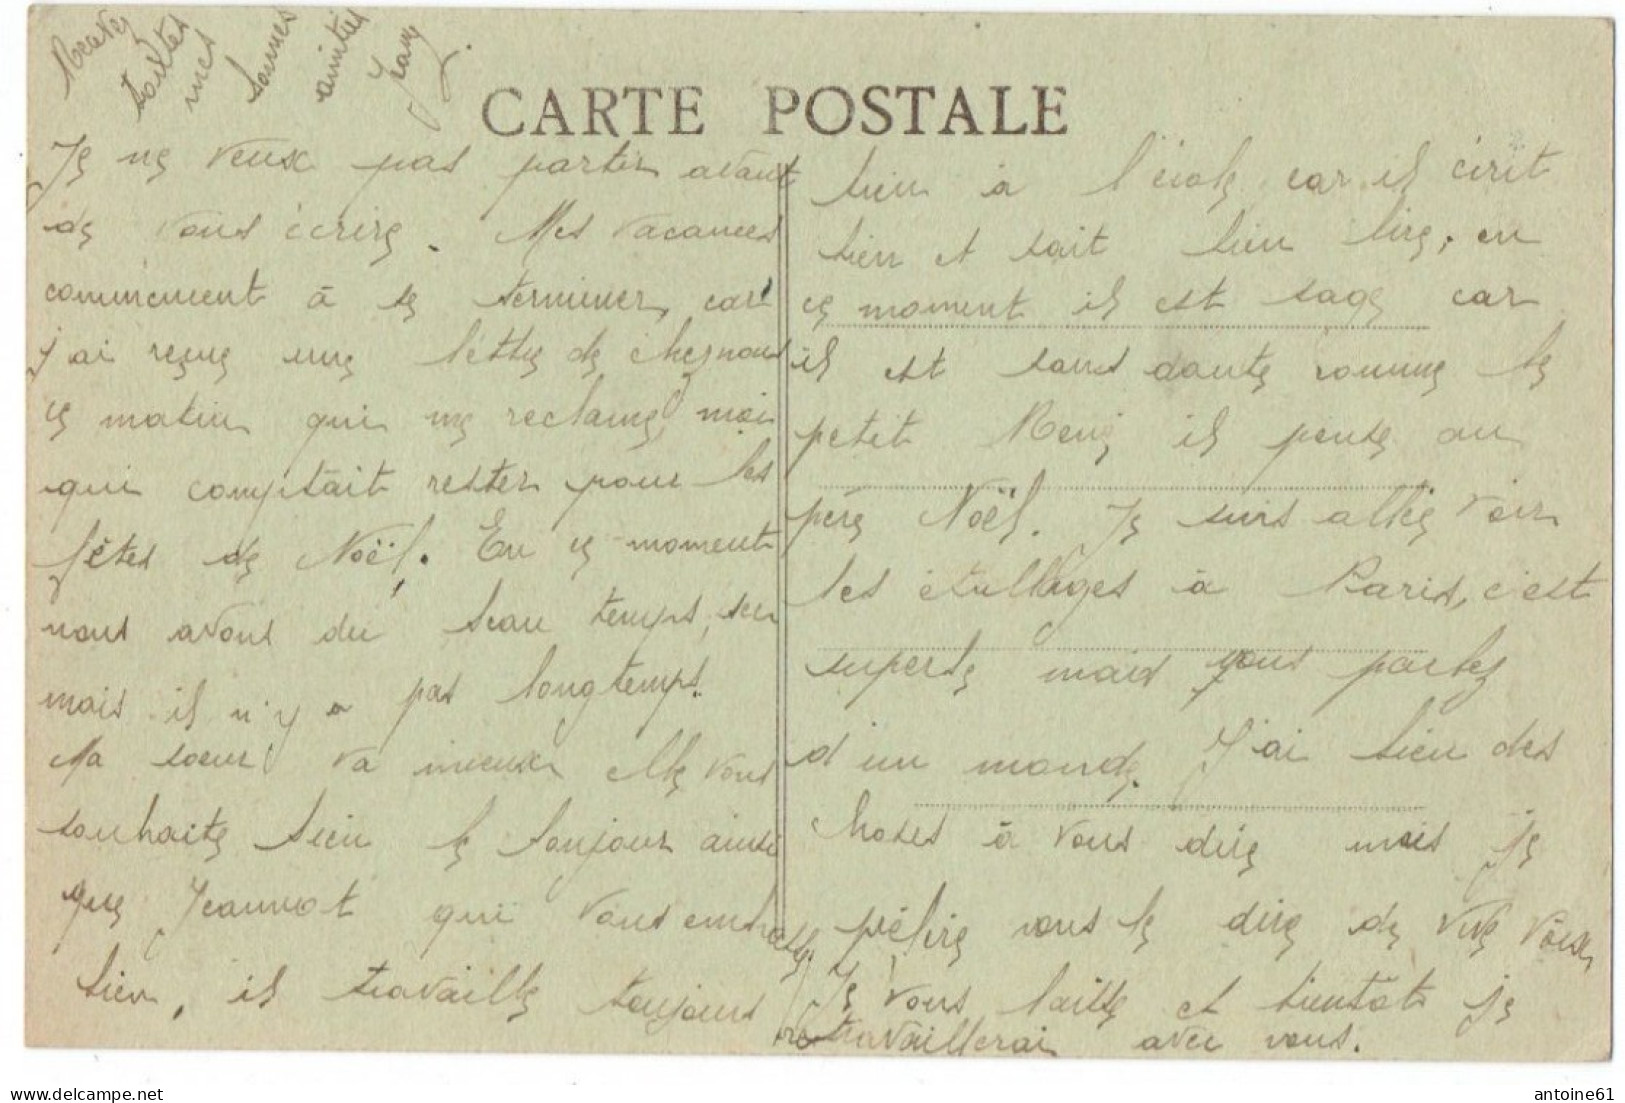 Recevez
toutes
mes
bonnes
amitiés
CARTE POSTALE
Je ne veux pas partir avant
de vous écrire. Mes vacances
commencent à se terminer, car
j'ai reçue une lettre de cheznous
ce matin qui me reclame, moi
qui comptait rester pour les
fêtes de Noël. En ce moment
nous avons du beau temps,
mais il n'y a pas longtemps.
Ma soeur va mieux elle vous
souhaite bien le bonjour ainsi
que Jeannot qui vous embrasse
bien, il travaille toujours
bien à l'école car il écrit
bien et sait bien lire, en
ce moment il est sage car
il est sans doute comme le
petit il pense au
père Noël. Je suis allée voir
les étallages à Paris, c'est
superbe mais vous parlez
d'un monde. J'ai bien des
choses à vous dire mais je
préfère vous le dire de vive voix
Je vous laisse et bientôt je
retravaillerai avec vous.
antoine61